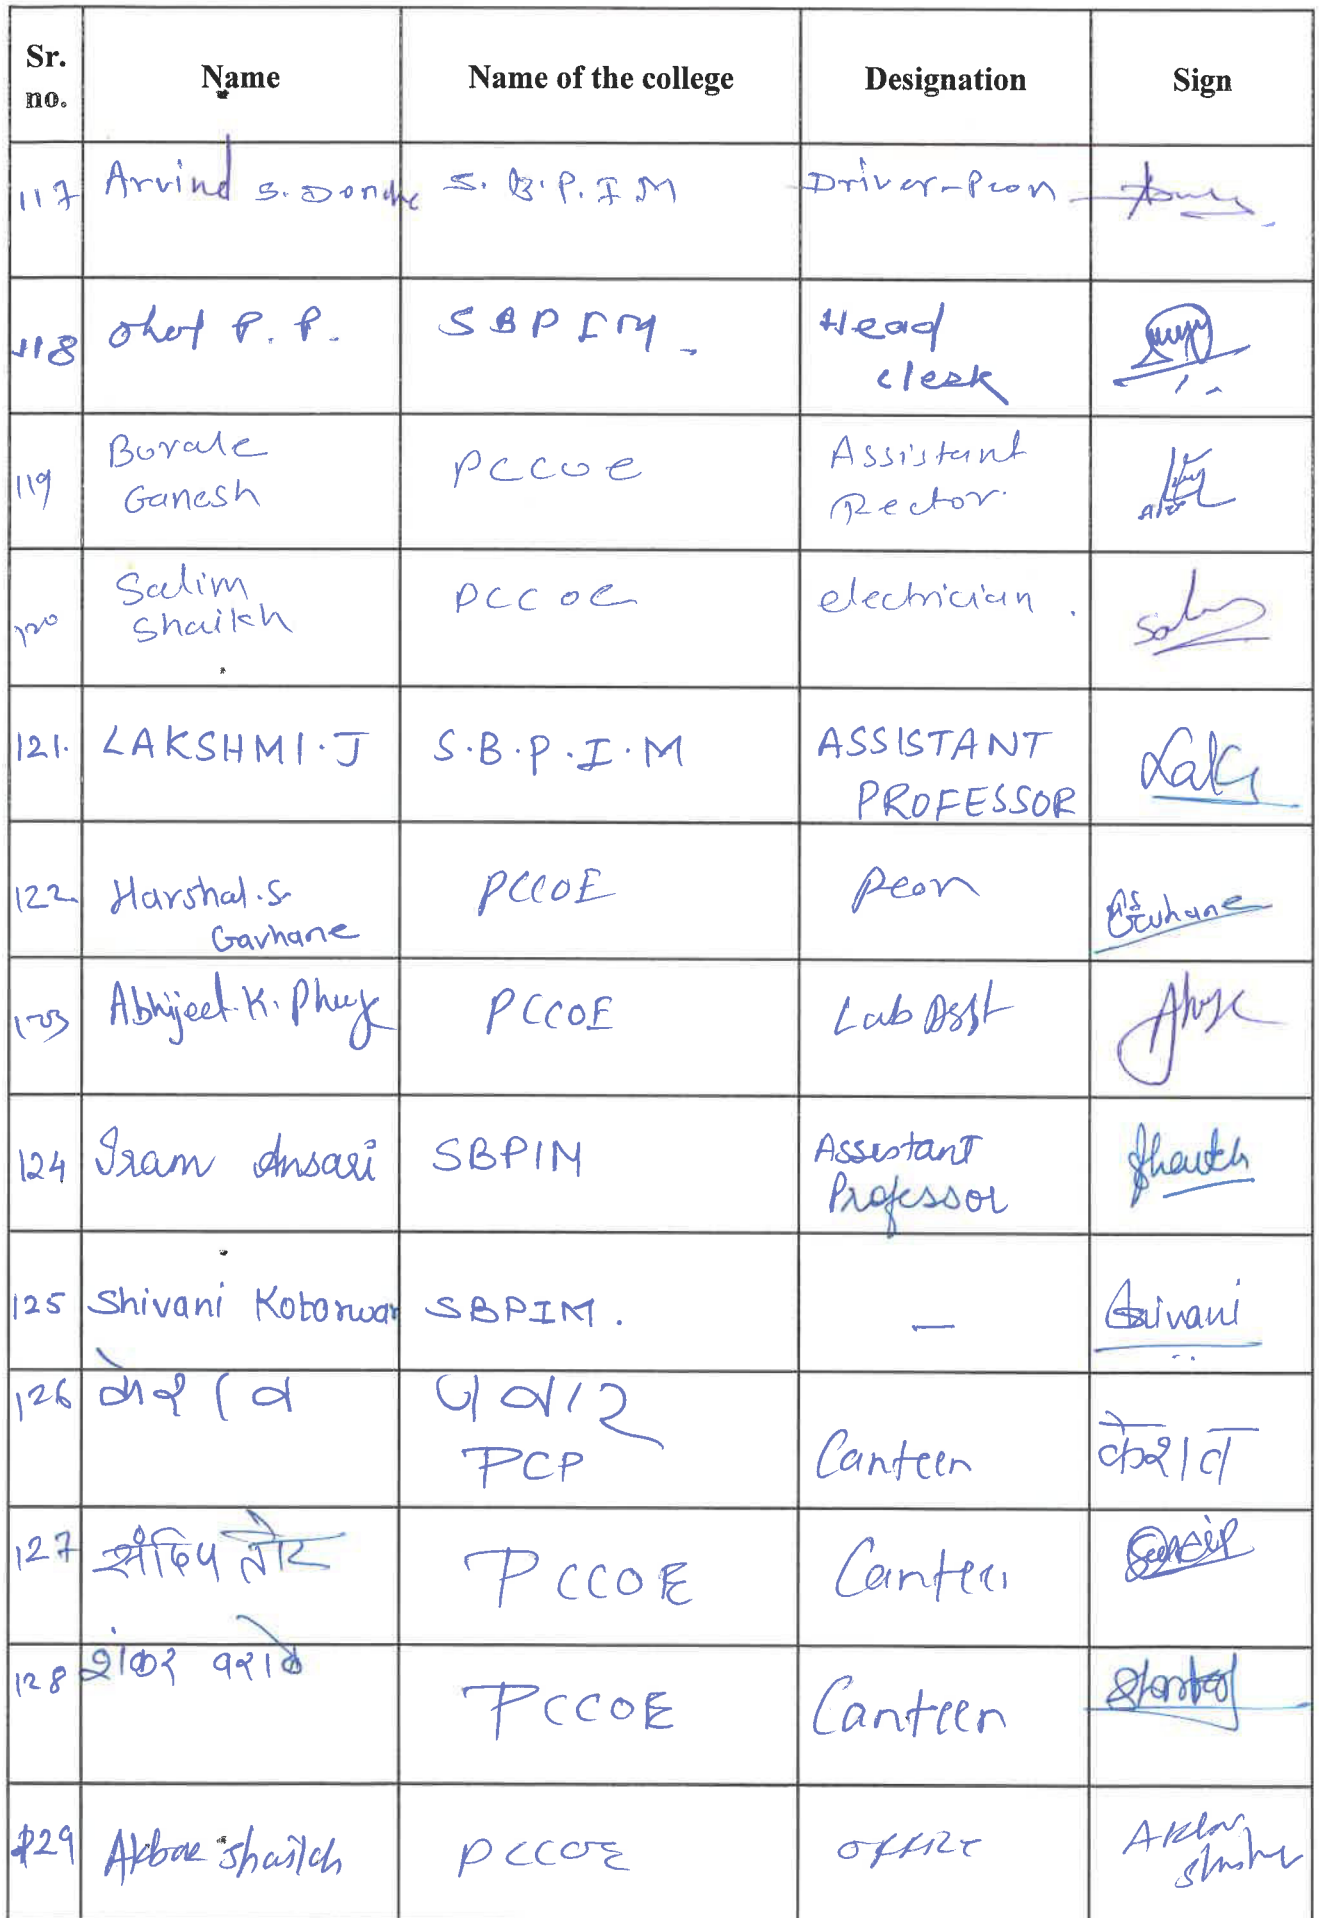 Sr. no. Name Name of the college Designation Sign
117 Arvind S. Donde S. B. P. I M Driver-Peon
118 P. P. SBPIM. Head
clerk
119 Borale PCCOE Assistant
Ganesh Rector.
120 Salim PCCOE electrician.
Shaikh
121. LAKSHMI.J S.B.P.I.M ASSISTANT
PROFESSOR
122. Harshal.S. PCCOE Peon
Gavhane Gavhane
123 Abhijeet.K. Phuge PCCOE Lab Asst
124 Iram Ansari SBPIM Assistant
Professor Shaikh
125 Shivani Kotorwar SBPIM. — Shivani
126 केशव पवार
PCP Canteen केशव
127 संदिप तौर PCCOE Canteen Sandip
128 शंकर वराडे PCCOE Canteen
129 Akbar Shaikh PCCOE office Akbar
Shaikh